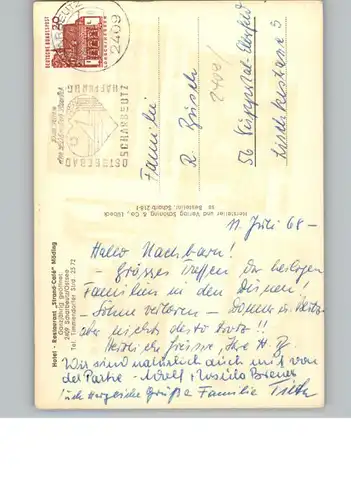 DEUTSCHE BUNDESPOST
20
2409
OSTSEEBAD
SCHARBEUTZ
HAFFKRUG
Familie
R. Büsch
56 Wuppertal-Elberfeld
2400/
Hersteller und Verlag Schöning & Co., Lübeck
Bestellnr. Scharb 218-f
Hotel - Restaurant „Strand-Café" Möding
Ganzjährig geöffnet
2409 Scharbeutz/Ostsee
Tel. Timmendorfer Strd. 2572
11. Juli 68 –
Hallo Nachbarn!
– Grosses Treffen der heiligen
Familien in den Dünen!
– Sonne verloren – Donner u.
aber nichts desto trotz!!
Herzliche Grüsse, Ihre H. B.
Wir sind natürlich auch mit von
der Partie – Adolf + Rosilda
Auch herzliche Grüße Familie